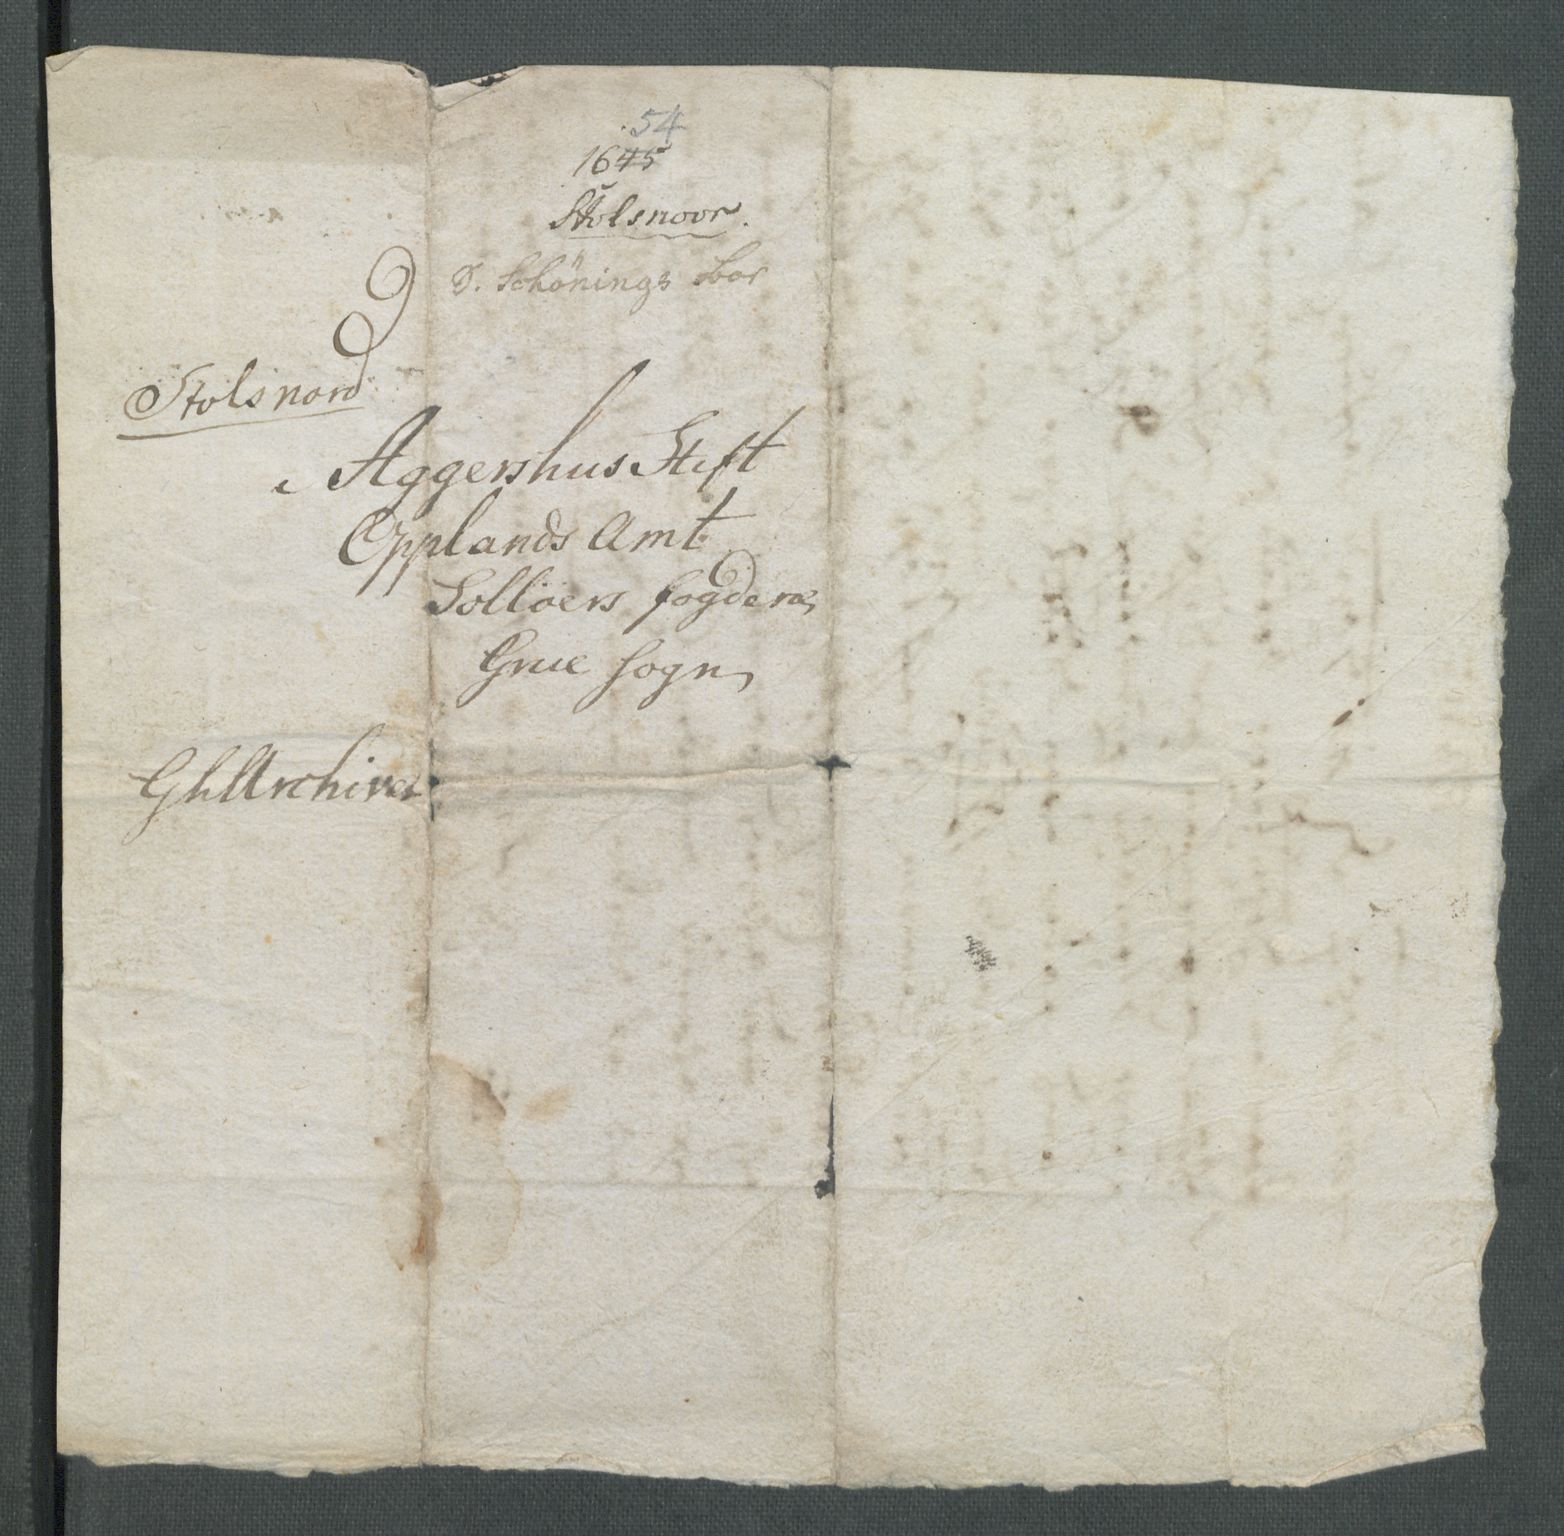 54
1645
Stolsnoor.
T. Schönings
Stolsnord
i Aggershus Stift
Opplands Amt
Solloers fogderie,
Grue Sogn,
Gh Archivet